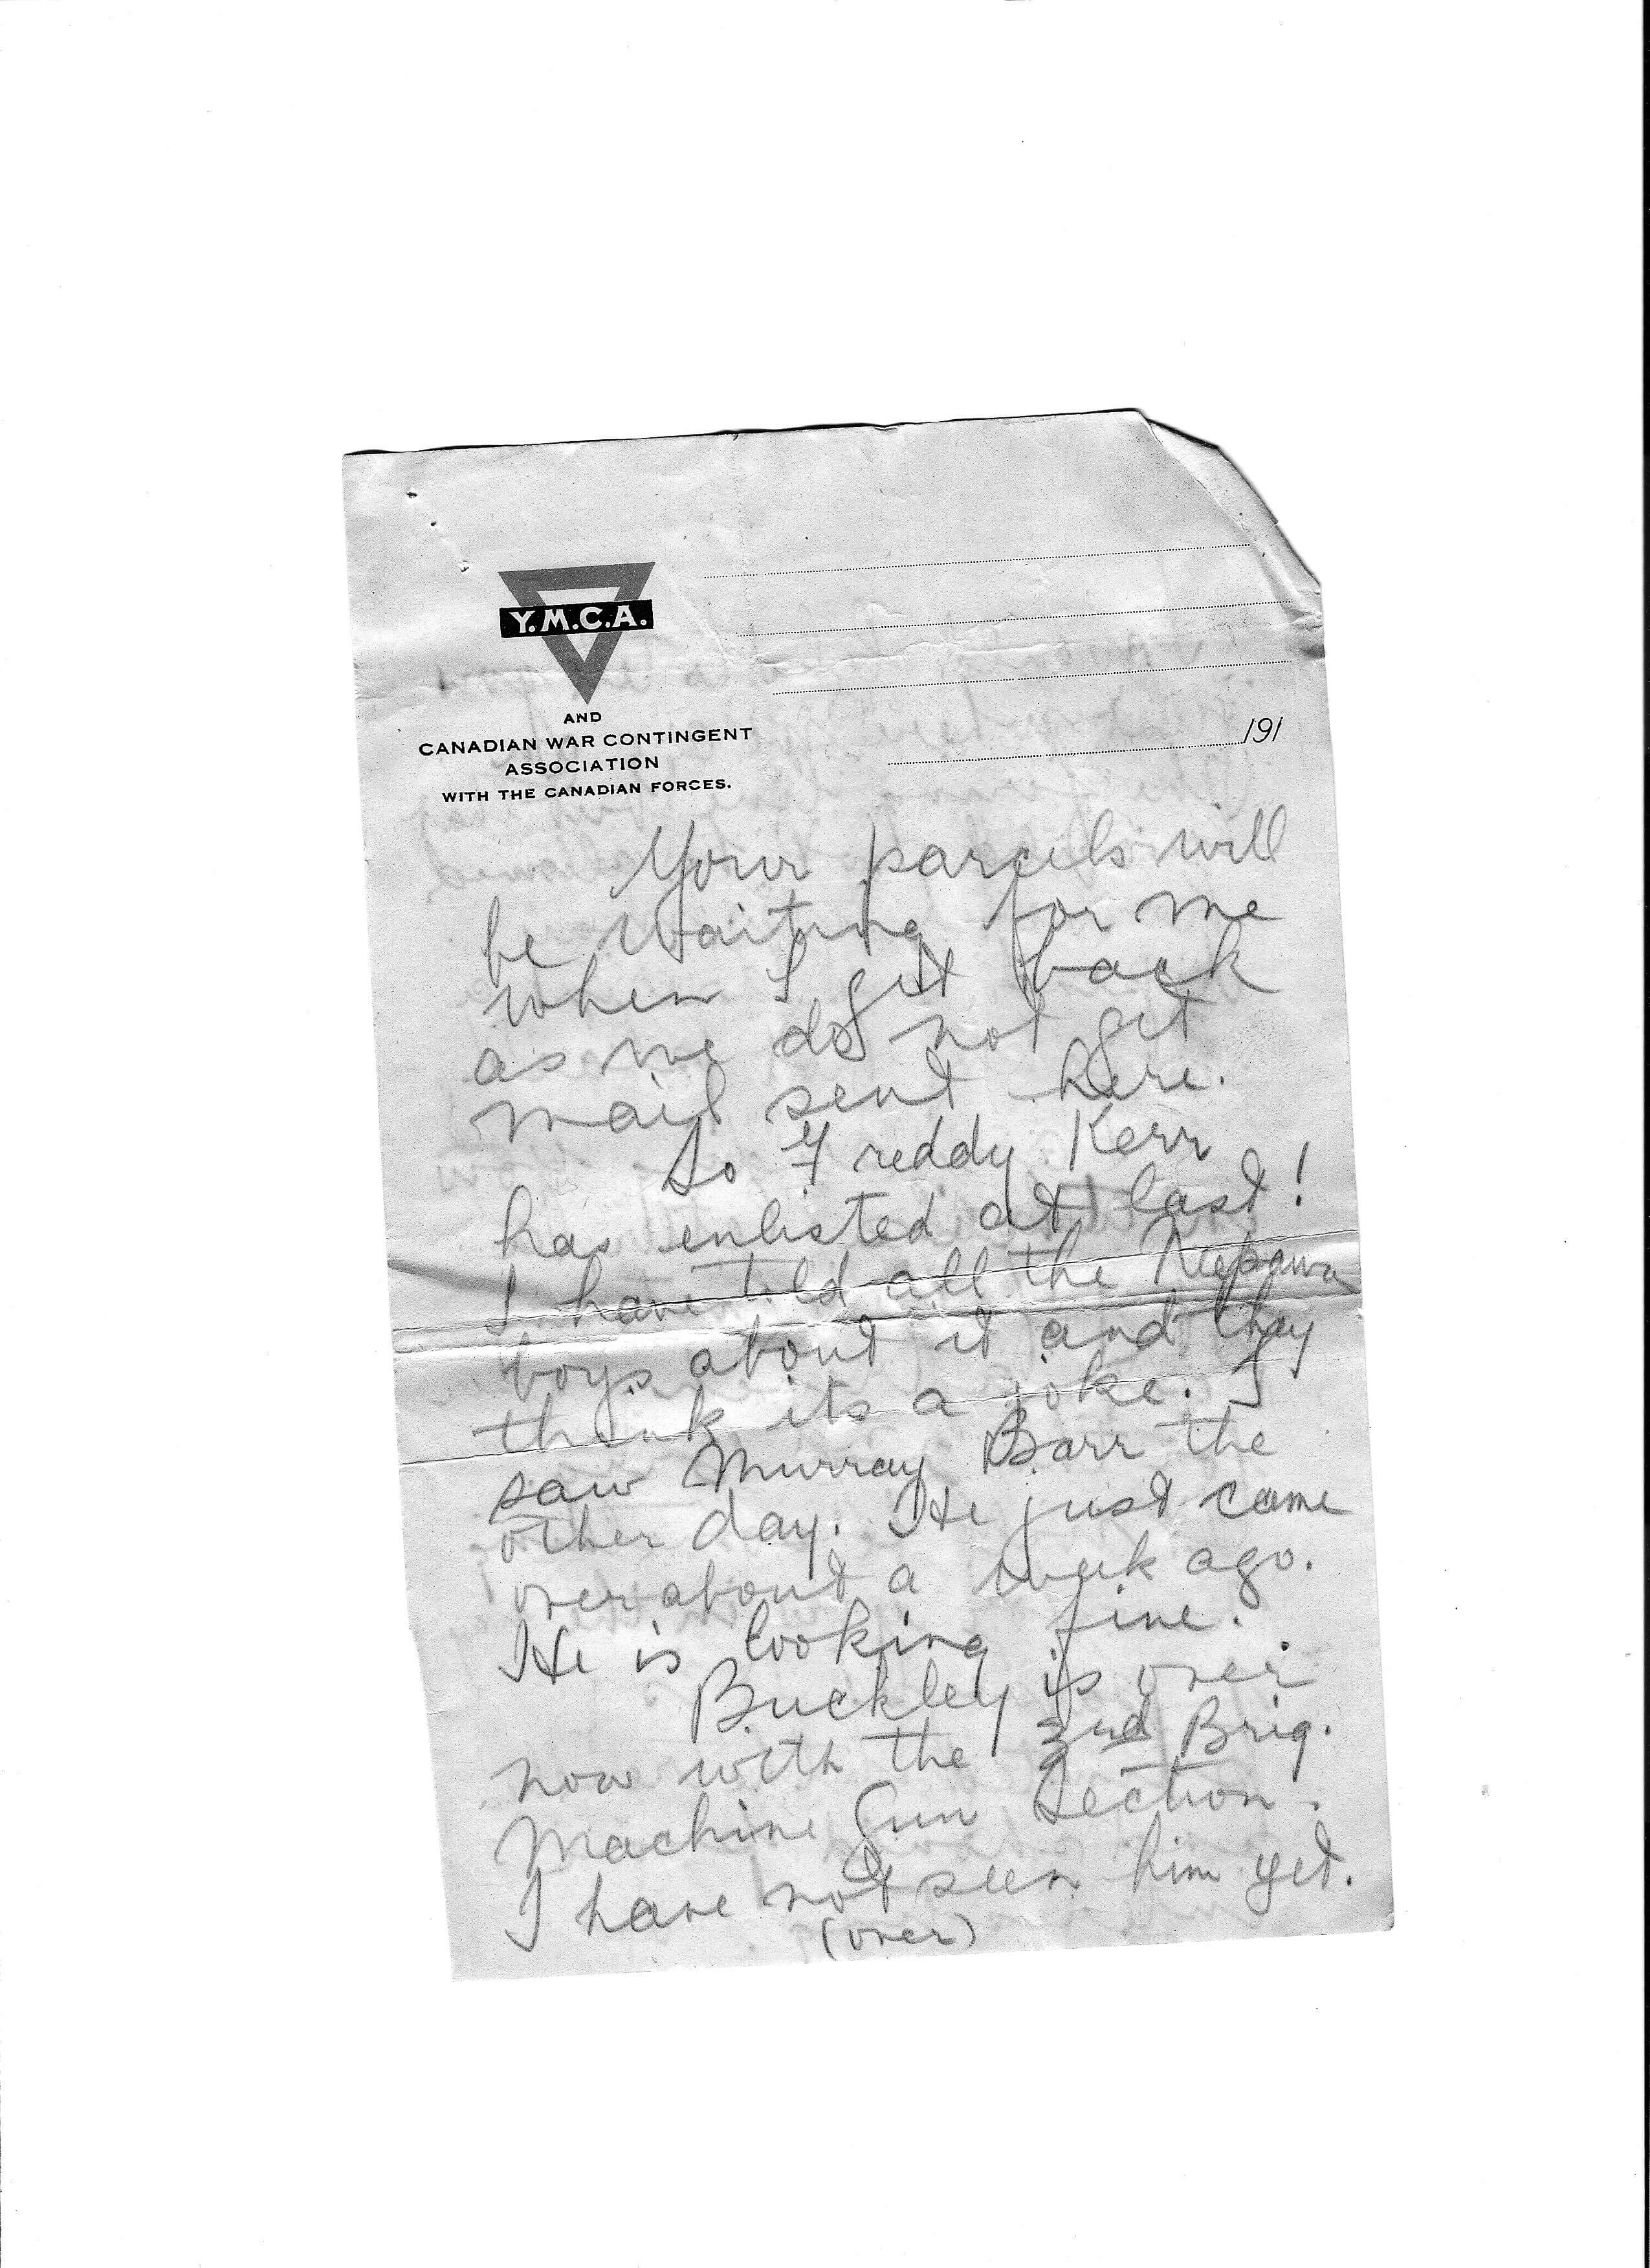 Y.M.C.A.
AND
CANADIAN WAR CONTINGENT
ASSOCIATION
WITH THE CANADIAN FORCES.
191
Your parcels will
be waiting for me
when I get back
as we do not get
mail sent here.
So Freddy Kerr
has enlisted at last!
I have told all the Neepawa
boys about it and they
think its a joke. I
saw Murray Barr the
other day. He just came
over about a week ago.
He is looking fine.
Buckley is over
now with the Brig.
Machine Gun Section.
I have not seen him yet.
(over)